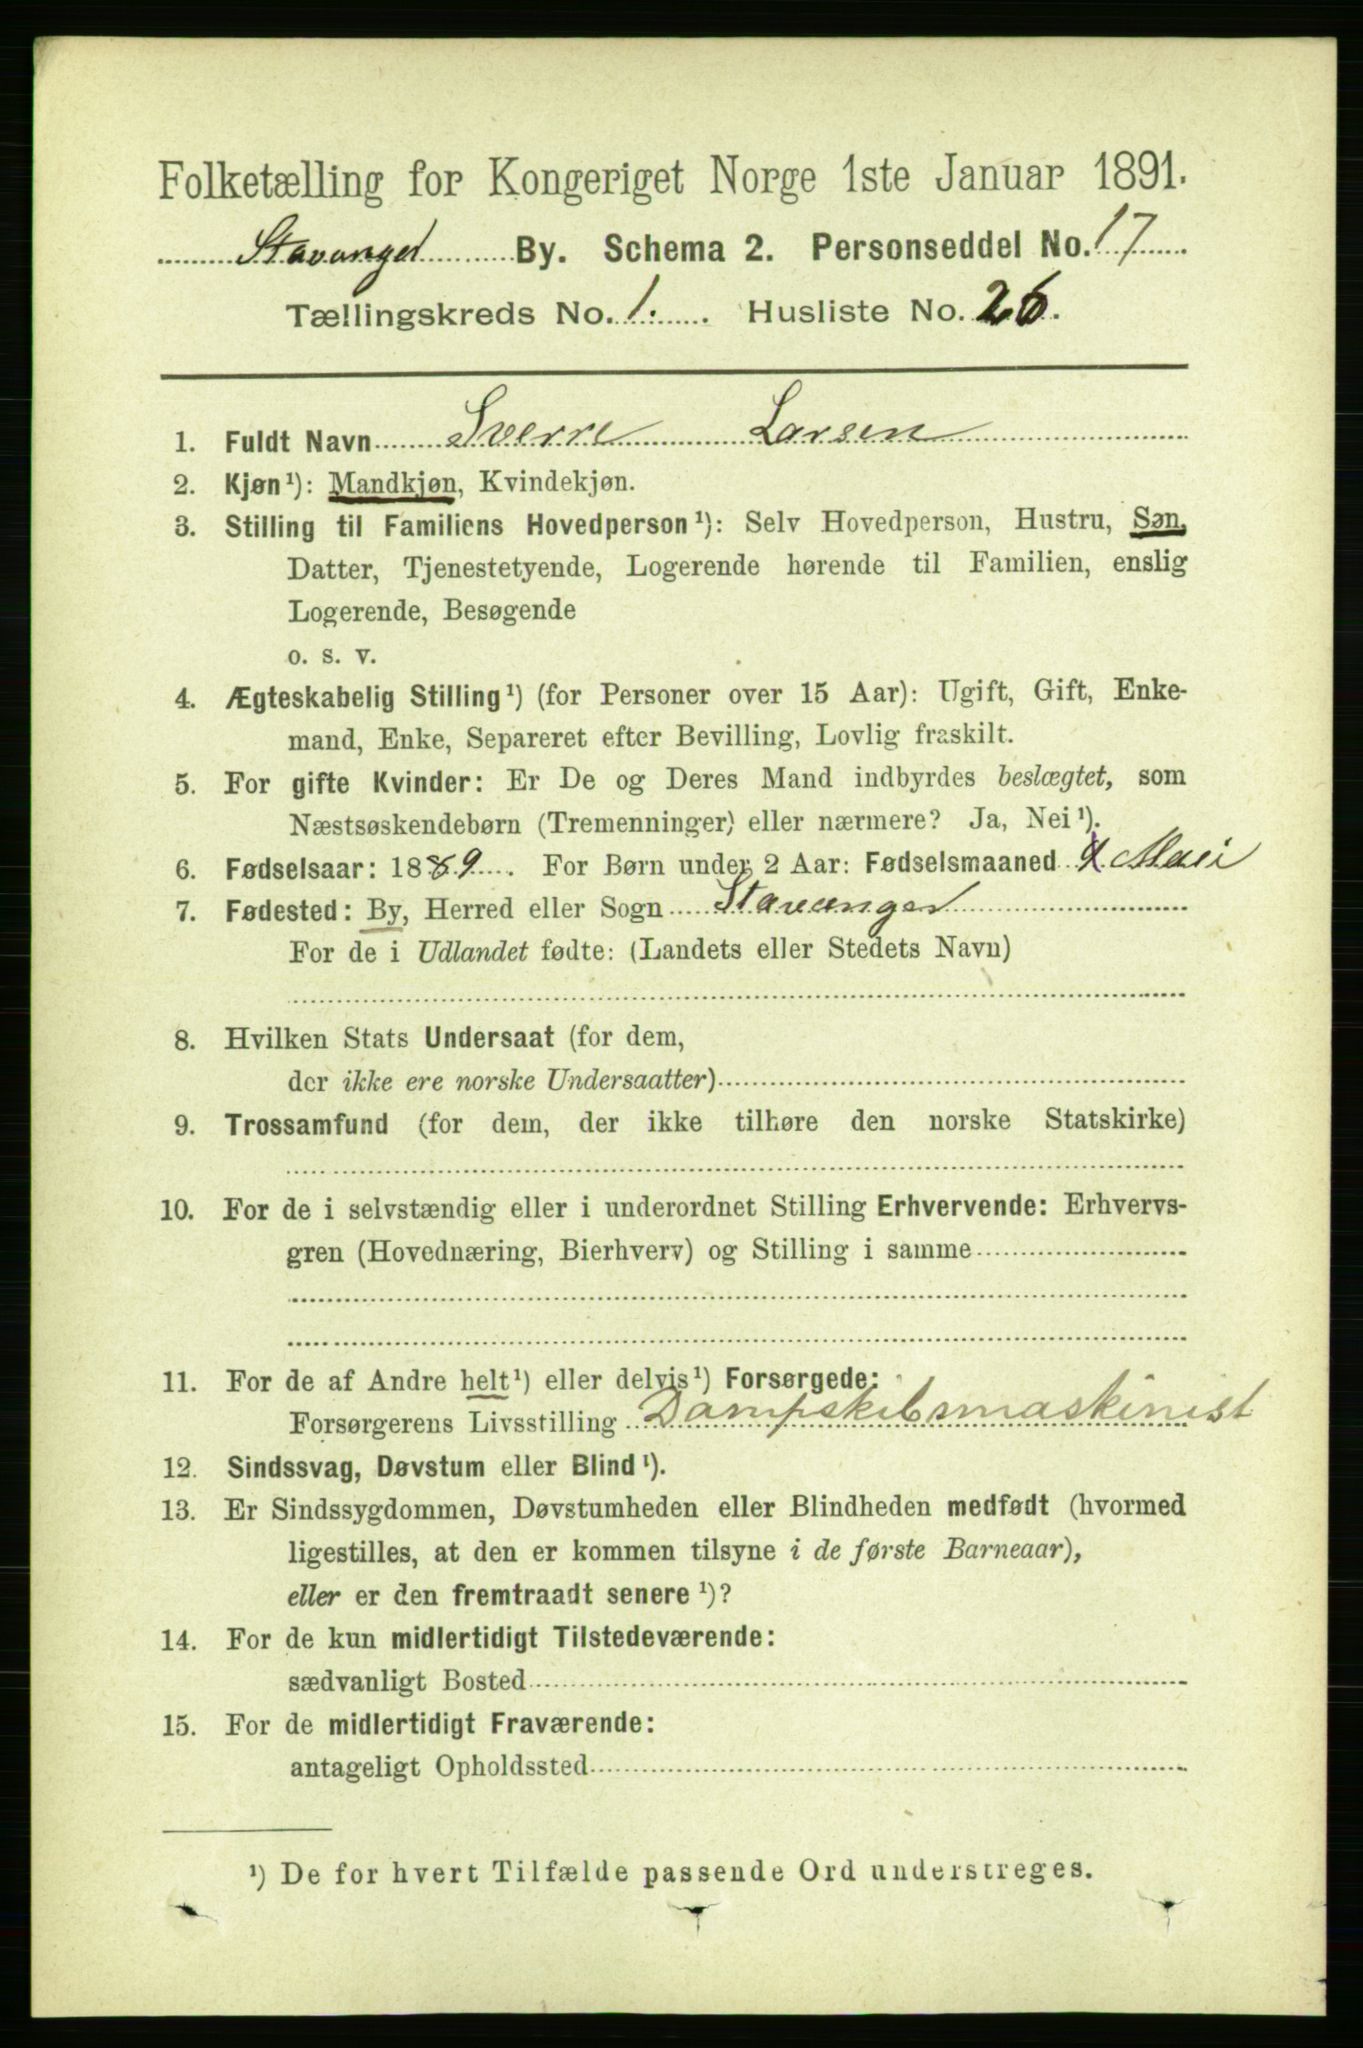 Folketælling for Kongeriget Norge 1ste Januar 1891.
Stavanger By. Schema 2. Personseddel No. 17
Tællingskreds No. 1. Husliste No. 26.
1. Fuldt Navn Sverre Larsen
2. Kjøn ¹): Mandkjøn, Kvindekjøn.
3. Stilling til Familiens Hovedperson ¹): Selv Hovedperson, Hustru, Søn,
Datter, Tjenestetyende, Logerende hørende til Familien, enslig
Logerende, Besøgende
o. s. v.
4. Ægteskabelig Stilling ¹) (for Personer over 15 Aar): Ugift, Gift, Enke-
mand, Enke, Separeret efter Bevilling, Lovlig fraskilt.
5. For gifte Kvinder: Er De og Deres Mand indbyrdes beslægtet, som
Næstsøskendebørn (Tremenninger) eller nærmere? Ja, Nei ¹).
6. Fødselsaar: 1889. For Børn under 2 Aar: Fødselsmaaned Mai
7. Fødested: By, Herred eller Sogn Stavanger
For de i Udlandet fødte: (Landets eller Stedets Navn)
8. Hvilken Stats Undersaat (for dem,
der ikke ere norske Undersaatter)
9. Trossamfund (for dem, der ikke tilhøre den norske Statskirke)
10. For de i selvstændig eller i underordnet Stilling Erhvervende: Erhvervs-
gren (Hovednæring, Bierhverv) og Stilling i samme
11. For de af Andre helt ¹) eller delvis ¹) Forsørgede:
Forsørgerens Livsstilling Dampskibsmaskinist
12. Sindssvag, Døvstum eller Blind ¹).
13. Er Sindssygdommen, Døvstumheden eller Blindheden medfødt (hvormed
ligestilles, at den er kommen tilsyne i de første Barneaar),
eller er den fremtraadt senere ¹)?
14. For de kun midlertidigt Tilstedeværende:
sædvanligt Bosted
15. For de midlertidigt Fraværende:
antageligt Opholdssted
¹) De for hvert Tilfælde passende Ord understreges.